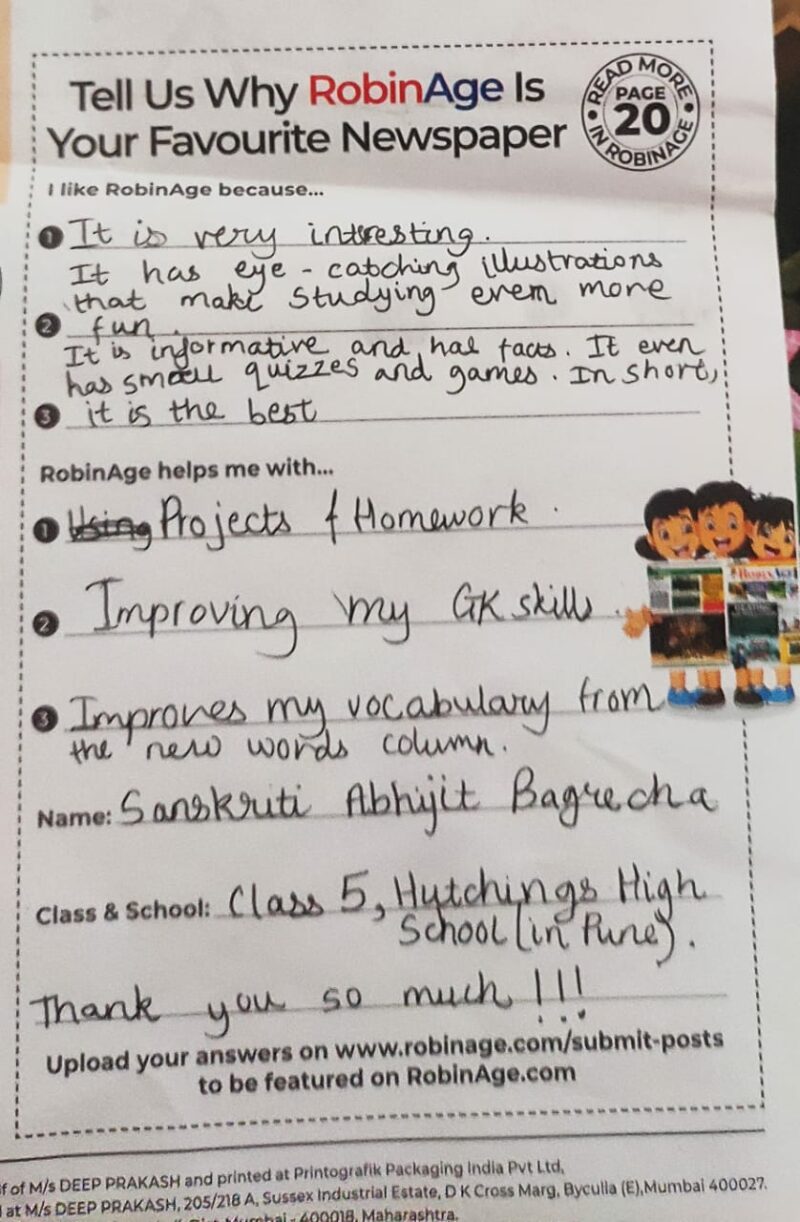 Tell Us Why RobinAge Is
Your Favourite Newspaper
READ MORE
PAGE
20
IN ROBINAGE
I like RobinAge because...
1 It is very interesting.
It has eye-catching illustrations
that make studying even more
2 fun.
It is informative and has facts. It even
has small quizzes and games. In short,
3 it is the best
RobinAge helps me with...
1 Using Projects & Homework.
2 Improving my GK skills.
3 Improves my vocabulary from
the new words column.
Name: Sanskruti Abhijit Bagrecha
Class & School: Class 5, Hutchings High
School (in Pune).
Thank you so much!!!
Upload your answers on www.robinage.com/submit-posts
to be featured on RobinAge.com
of M/s DEEP PRAKASH and printed at Printografik Packaging India Pvt Ltd,
at M/s DEEP PRAKASH, 205/218 A, Sussex Industrial Estate, D K Cross Marg, Byculla (E), Mumbai 400027.
Mumbai - 400018, Maharashtra.